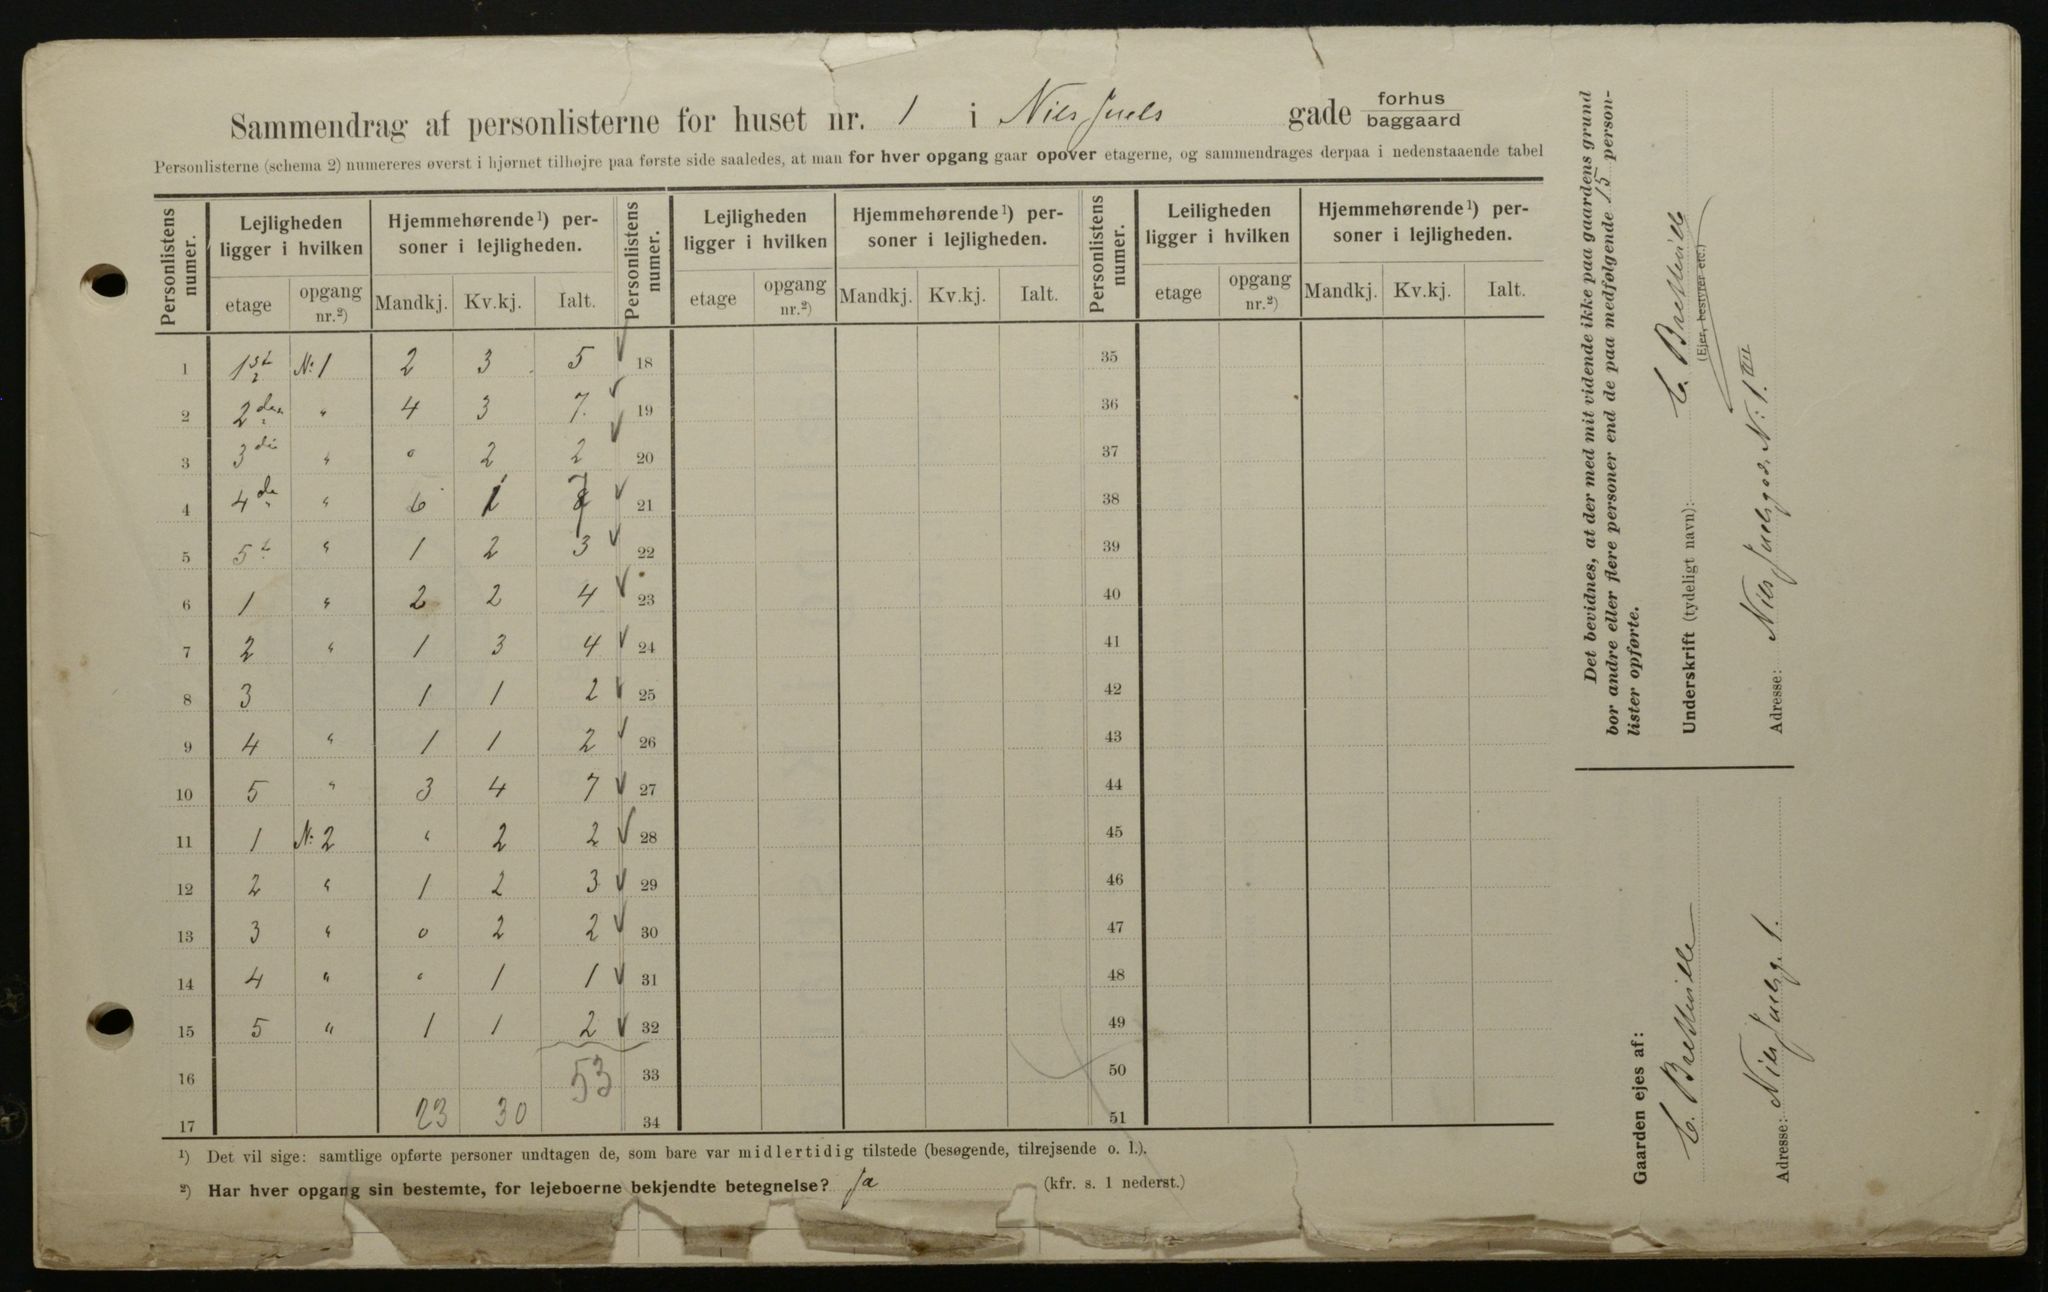 Sammendrag af personlisterne for huset nr. 1 i Niels Juels gade forhus baggaard
Personlisterne (schema 2) numereres øverst i hjørnet tilhøjre paa første side saaledes, at man for hver opgang gaar opover etagerne, og sammendrages derpaa i nedenstaaende tabel
Personlistens numer. Lejligheden ligger i hvilken Hjemmehørende¹) personer i lejligheden. Personlistens numer. Lejligheden ligger i hvilken Hjemmehørende¹) personer i lejligheden. Personlistens numer. Leiligheden ligger i hvilken Hjemmehørende¹) personer i lejligheden.
etage opgang nr.²) Mandkj. Kv.kj. Ialt. etage opgang nr.²) Mandkj. Kv.kj. Ialt. etage opgang nr.²) Mandkj. Kv.kj. Ialt.
1 1st N: 1 2 3 5 18 35
2 2den " 4 3 7 19 36
3 3die " 0 2 2 20 37
4 4de " 6 1 7 21 38
5 5t " 1 2 3 22 39
6 1 " 2 2 4 23 40
7 2 " 1 3 4 24 41
8 3 1 1 2 25 42
9 4 " 1 1 2 26 43
10 5 " 3 4 7 27 44
11 1 N: 2 " 2 2 28 45
12 2 " 1 2 3 29 46
13 3 " 0 2 2 30 47
14 4 " 0 1 1 31 48
15 5 " 1 1 2 32 49
16 53 33 50
17 23 30 34 51
¹) Det vil sige: samtlige opførte personer undtagen de, som bare var midlertidig tilstede (besøgende, tilrejsende o. l.).
²) Har hver opgang sin bestemte, for lejeboerne bekjendte betegnelse? Ja (kfr. s. 1 nederst.)
Det bevidnes, at der med mit vidende ikke paa gaardens grund
bor andre eller flere personer end de paa medfølgende 15 person-
lister opførte.
Underskrift (tydeligt navn):
(Ejer, bestyrer etc.)
Adresse: Niels Juelsgad. N: 1. III
Gaarden ejes af:
Adresse: Niels Juelsg. 1.